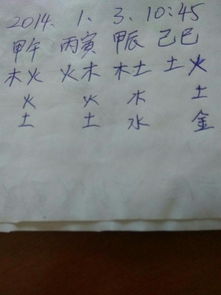 2014. 1. 3. 10:45
甲午 丙寅 甲辰 己巳
木火 火木 木土 土火
火 火 木 土
土 土 水 金